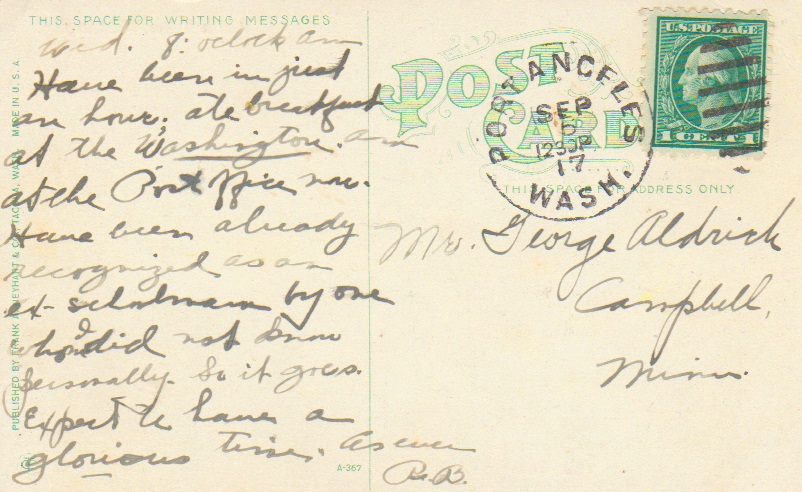 THIS SPACE FOR WRITING MESSAGES
Wed. 8. oclock am
Have been in just
an hour. ate breakfast
at the Washington. am
at the Post office now.
Have been already
recognized as an
ex-schoolmarm by one
whom I did not know
personally. So it goes.
Expect to have a
glorious time. As ever
R.B.
A-367
MADE IN U.S.A.
PUBLISHED BY FRANK TACOMA, WASH.
POST CARD
PORT ANGELES
SEP
5
17
WASH.
U.S. POSTAGE
1 CENTS 1
THIS SPACE FOR ADDRESS ONLY.
Mr. George Aldrich
Campbell,
Minn.